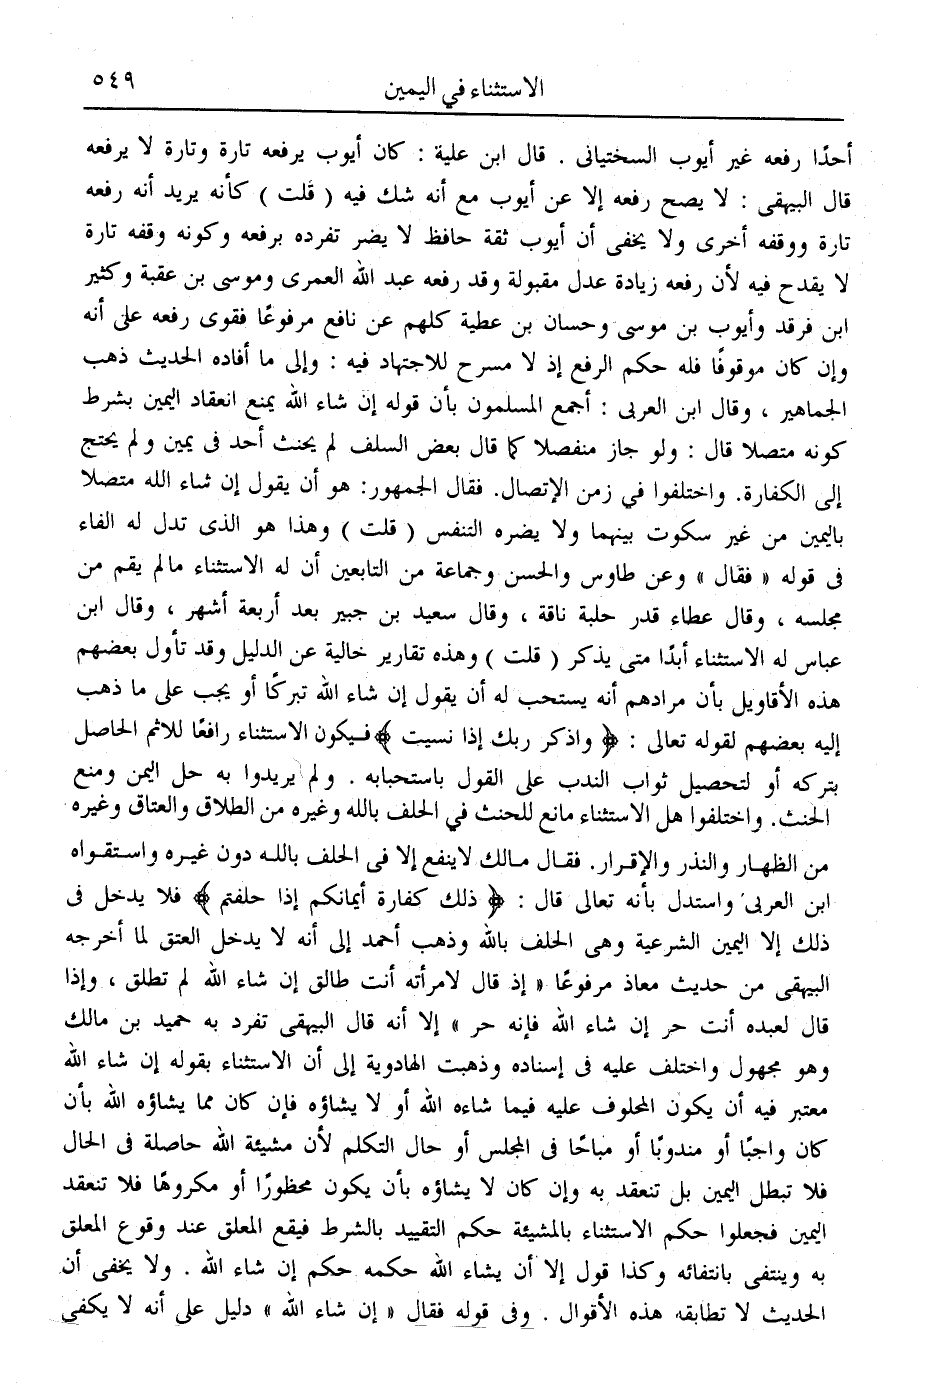 الاستثناء في اليمين ٥٤٩
أحدًا رفعه غير أيوب السختيانى . قال ابن علية : كان أيوب يرفعه تارة وتارة لا يرفعه
قال البيهقى : لا يصح رفعه إلا عن أيوب مع أنه شك فيه ( قلت ) كأنه يريد أنه رفعه
تارة ووقفه أخرى ولا يخفى أن أيوب ثقة حافظ لا يضر تفرده برفعه وكونه وقفه تارة
لا يقدح فيه لأن رفعه زيادة عدل مقبولة وقد رفعه عبد الله العمرى وموسى بن عقبة وكثير
ابن فرقد وأيوب بن موسى وحسان بن عطية كلهم عن نافع مرفوعًا فقوى رفعه على أنه
وإن كان موقوفًا فله حكم الرفع إذ لا مسرح للاجتهاد فيه : وإلى ما أفاده الحديث ذهب
الجماهير ، وقال ابن العربى : أجمع المسلمون بأن قوله إن شاء الله يمنع انعقاد اليمين بشرط
كونه متصلا قال : ولو جاز منفصلا كما قال بعض السلف لم يحنث أحد فى يمين ولم يحتج
إلى الكفارة. واختلفوا في زمن الإتصال. فقال الجمهور: هو أن يقول إن شاء الله متصلا
باليمين من غير سكوت بينهما ولا يضره التنفس ( قلت ) وهذا هو الذى تدل له الفاء
فى قوله « فقال » وعن طاوس والحسن وجماعة من التابعين أن له الاستثناء مالم يقم من
مجلسه ، وقال عطاء قدر حلبة ناقة ، وقال سعيد بن جبير بعد أربعة أشهر ، وقال ابن
عباس له الاستثناء أبدًا متى يذكر ( قلت ) وهذه تقارير خالية عن الدليل وقد تأول بعضهم
هذه الأقاويل بأن مرادهم أنه يستحب له أن يقول إن شاء الله تبركًا أو يجب على ما ذهب
إليه بعضهم لقوله تعالى : ﴿ واذكر ربك إذا نسيت ﴾ فيكون الاستثناء رافعًا للاثم الحاصل
بتركه أو لتحصيل ثواب الندب على القول باستحبابه . ولم يريدوا به حل اليمن ومنع
الحنث. واختلفوا هل الاستثناء مانع للحنث في الحلف بالله وغيره من الطلاق والعتاق وغيره
من الظهار والنذر والإقرار. فقال مالك لاينفع إلا فى الحلف بالله دون غيره واستقواه
ابن العربى واستدل بأنه تعالى قال : ﴿ ذلك كفارة أيمانكم إذا حلفتم ﴾ فلا يدخل فى
ذلك إلا اليمين الشرعية وهى الحلف بالله وذهب أحمد إلى أنه لا يدخل العتق لما أخرجه
البيهقى من حديث معاذ مرفوعًا « إذ قال لامرأته أنت طالق إن شاء الله لم تطلق ، وإذا
قال لعبده أنت حر إن شاء الله فإنه حر » إلا أنه قال البيهقى تفرد به حميد بن مالك
وهو مجهول واختلف عليه فى إسناده وذهبت الهادوية إلى أن الاستثناء بقوله إن شاء الله
معتبر فيه أن يكون المحلوف عليه فيما شاءه الله أو لا يشاؤه فإن كان مما يشاؤه الله بأن
كان واجبًا أو مندوبًا أو مباحًا فى المجلس أو حال التكلم لأن مشيئة الله حاصلة فى الحال
فلا تبطل اليمين بل تنعقد به وإن كان لا يشاؤه بأن يكون محظورًا أو مكروهًا فلا تنعقد
اليمين فجعلوا حكم الاستثناء بالمشيئة حكم التقييد بالشرط فيقع المعلق عند وقوع المعلق
به وينتفى بانتفائه وكذا قول إلا أن يشاء الله حكمه حكم إن شاء الله . ولا يخفى أن
الحديث لا تطابقه هذه الأقوال . وفى قوله فقال « إن شاء الله » دليل على أنه لا يكفى